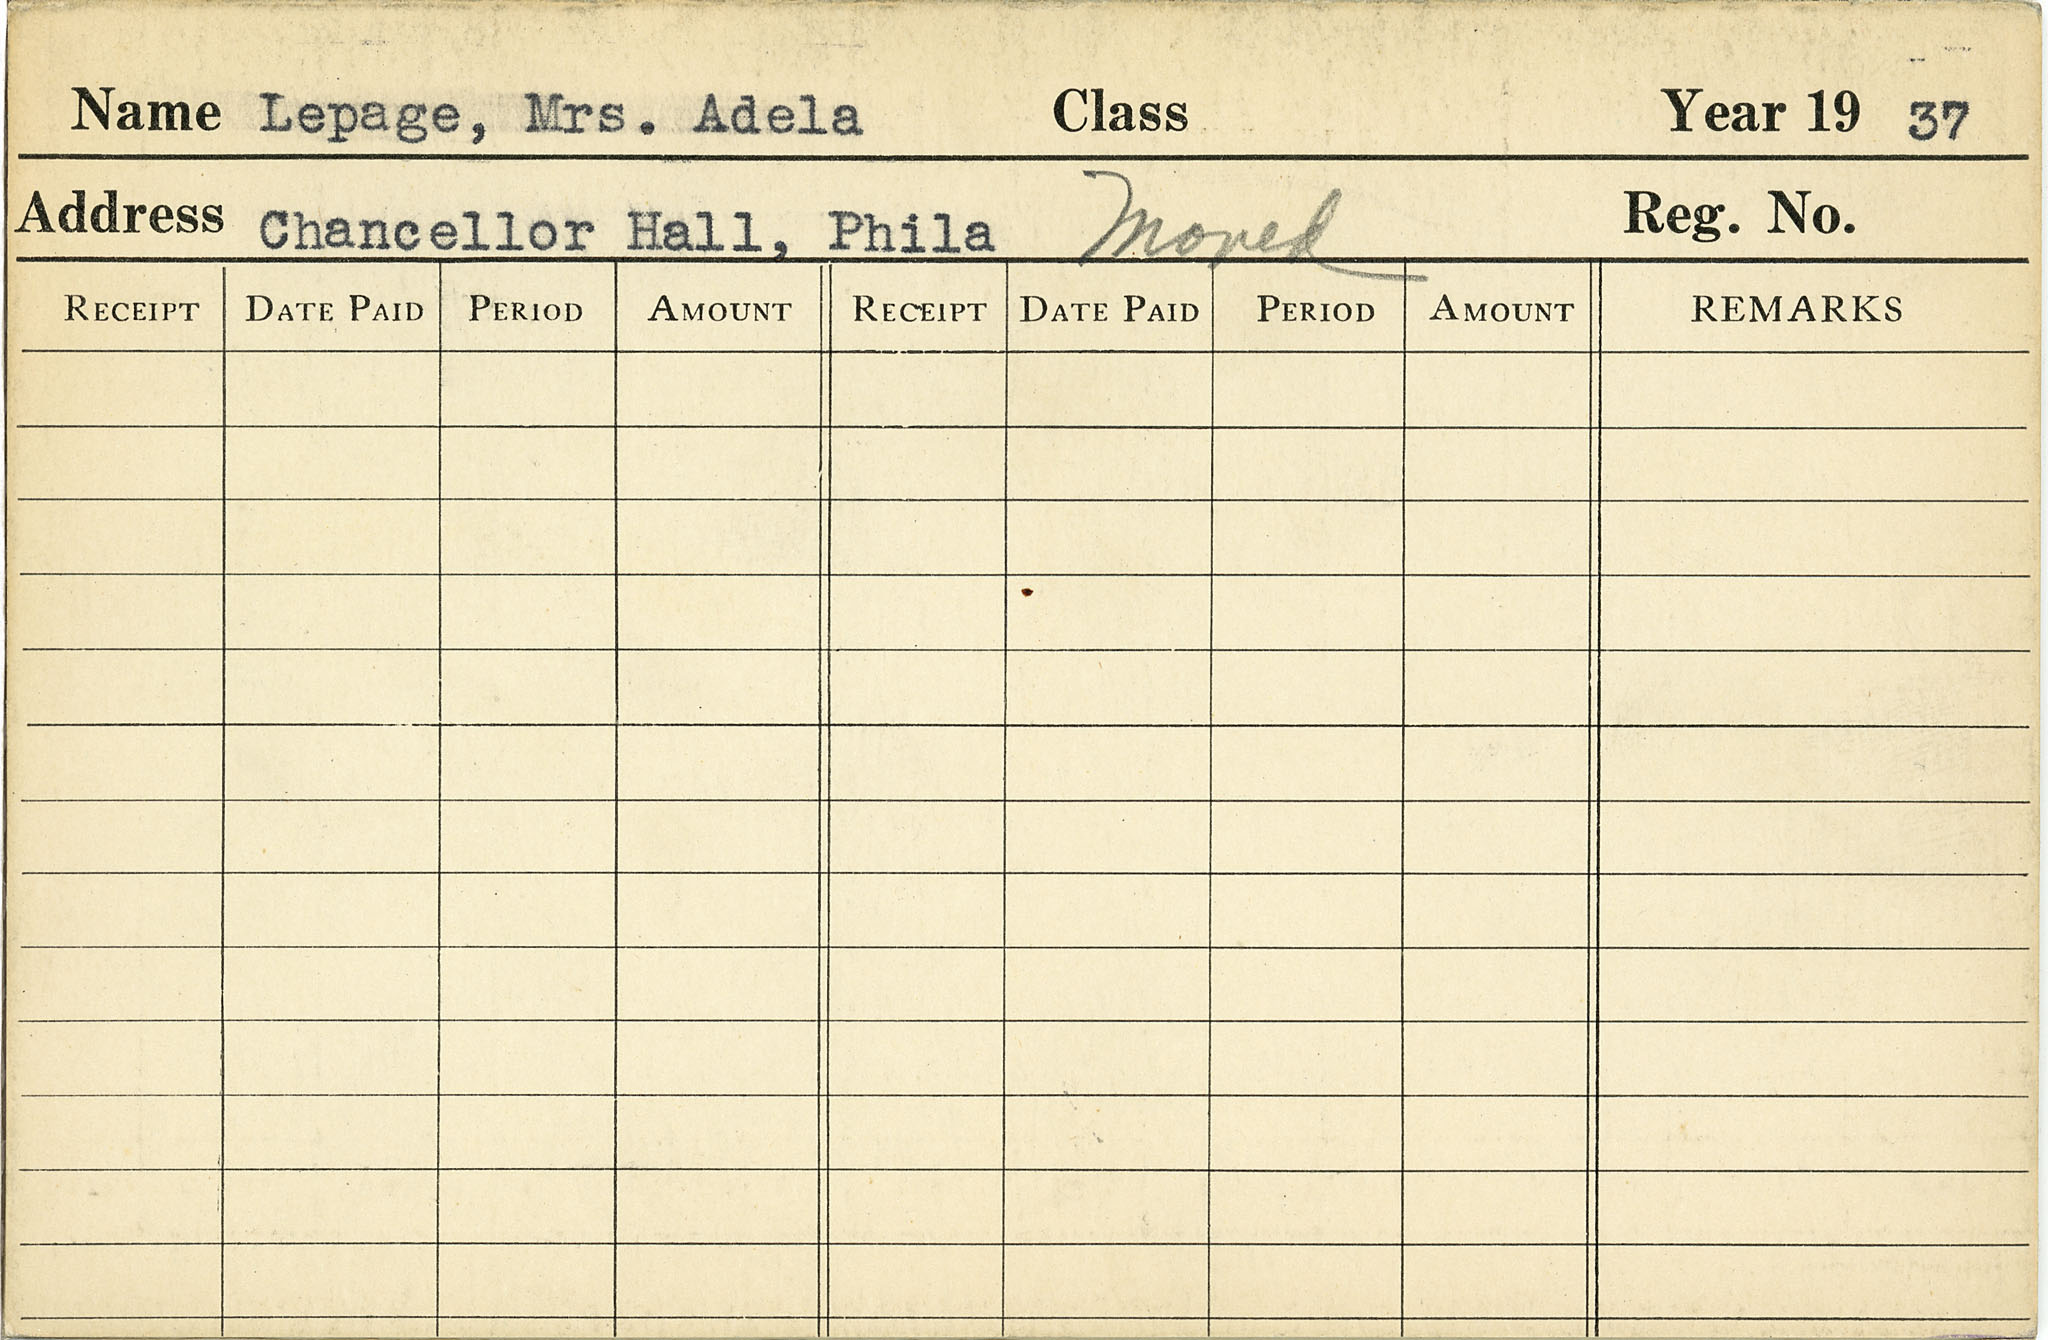 Name Lepage, Mrs. Adela Class Year 19 37
Address Chancellor Hall, Phila Moved Reg. No.
RECEIPT DATE PAID PERIOD AMOUNT RECEIPT DATE PAID PERIOD AMOUNT REMARKS